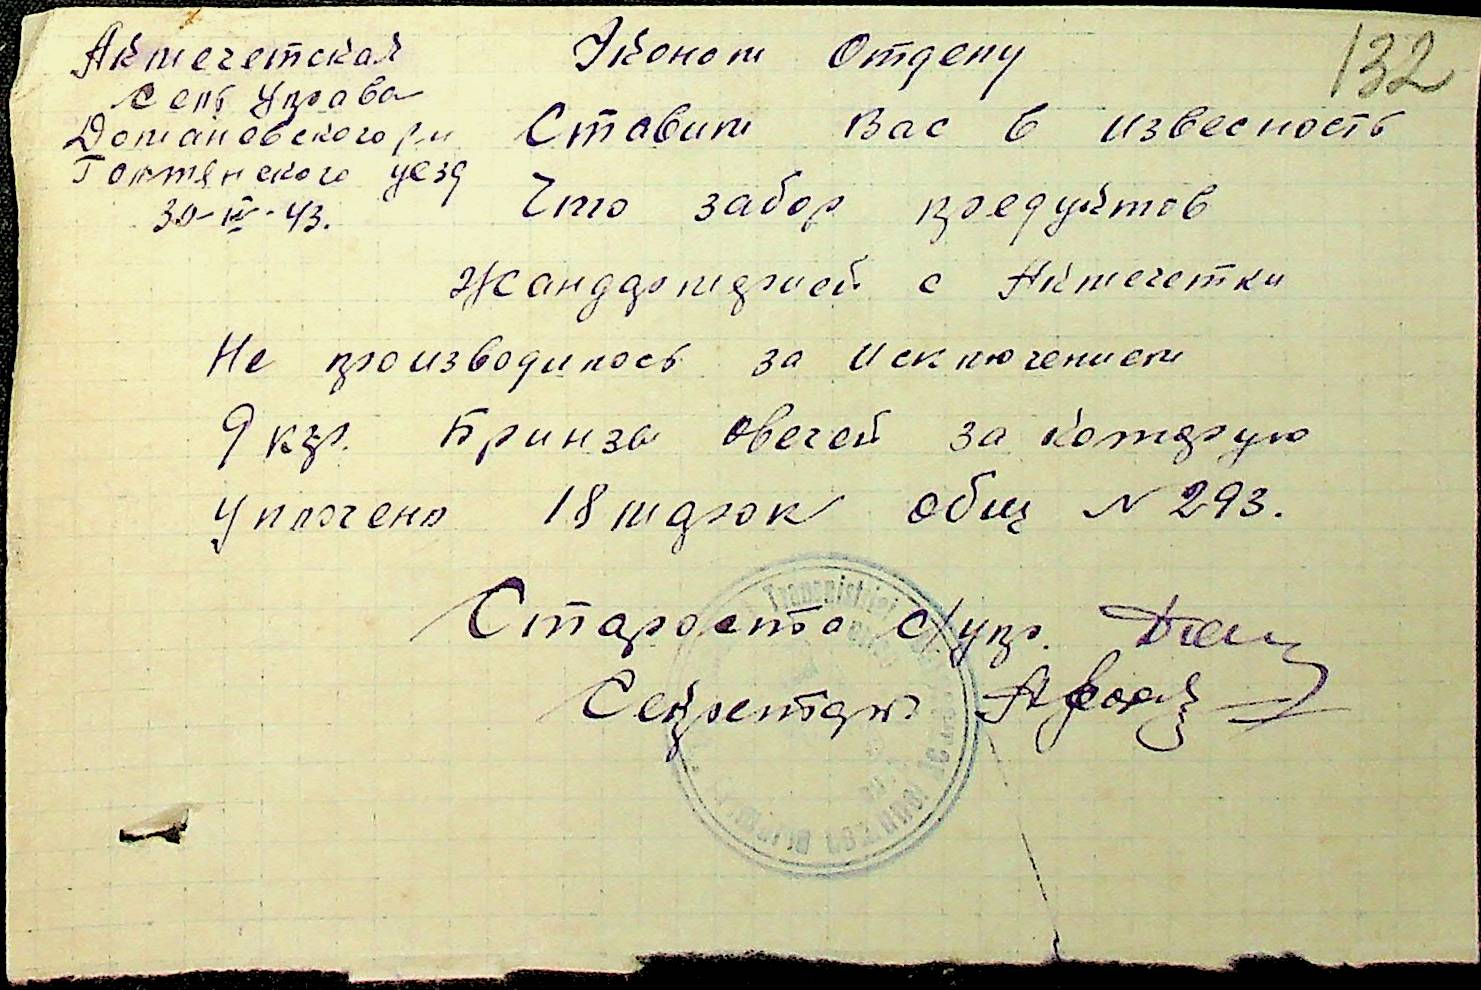 132
Акмечетская
Сель Управа
Доманевского р-н
Голтянского уезд
30-IV-43.
Уконом Отделу
Ставим Вас в известность
Что забор продуктов
Жандармерией с Акмечетки
Не производилось за исключением
9 кгр. Брынзы овечей за которую
уплочено 18 марок общ N 293.
Староста с/упр.
Секретарь
Transnistriei